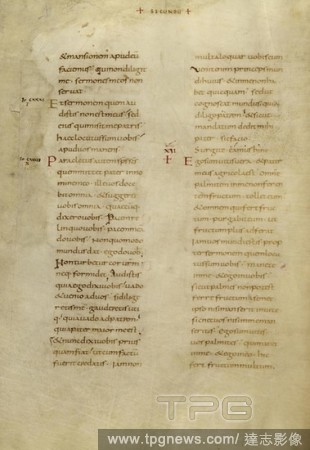 SEC IOHAN
& mansionem apud eu
faciemus · qui non diligit
me sermones meos non
servat
Et sermonem quem au
distis non est meus sed
eius qui misit me patris
haec locutus sum vobis
apud vos manens
Paraclitus autem sps scs
quem mittet pater in no
mine meo · ille vos doce
bit omnia · & suggeret
vobis omnia · quaecumq
dixero vobis · Pacem
linquo vobis pacem meam
do vobis · Non quomodo
mundus dat ego do vobis
Non turbetur cor vestrum
neq formidet · Audistis
quia ego dixi vobis vado
& venio ad vos · si dilige
retis me · gauderetis uti
q quia vado ad patrem
quia pater maior me est
& nunc dixi vobis prius
quam fiat ut cum factu
fuerit credatis · iam non
multa loquar vobiscum
venit enim princeps mun
di huius · & in me non ha
bet quicquam · sed ut
cognoscat mundus quia
diligo patrem · & sicut
mandatum dedit mihi
pater · sic facio
XXI Surgite eamus hinc
Ego sum vitis vera · & pater
meus agricola est · omne
palmitem in me non feren
tem fructum tollet eum
& omnem qui fert fruc
tum purgabit eum · ut
fructum plus afferat
Iam vos mundi estis prop
ter sermonem quem locu
tus sum vobis · manete in
me · & ego in vobis
sicut palmes non potest
ferre fructum a semet
ipso nisi manserit in vite
sic nec vos nisi in me man
seritis · Ego sum vitis
vos palmites · qui manet in
me · & ego in eo hic
fert fructum multum
TPG
www.tpgnews.com/ 達志影像